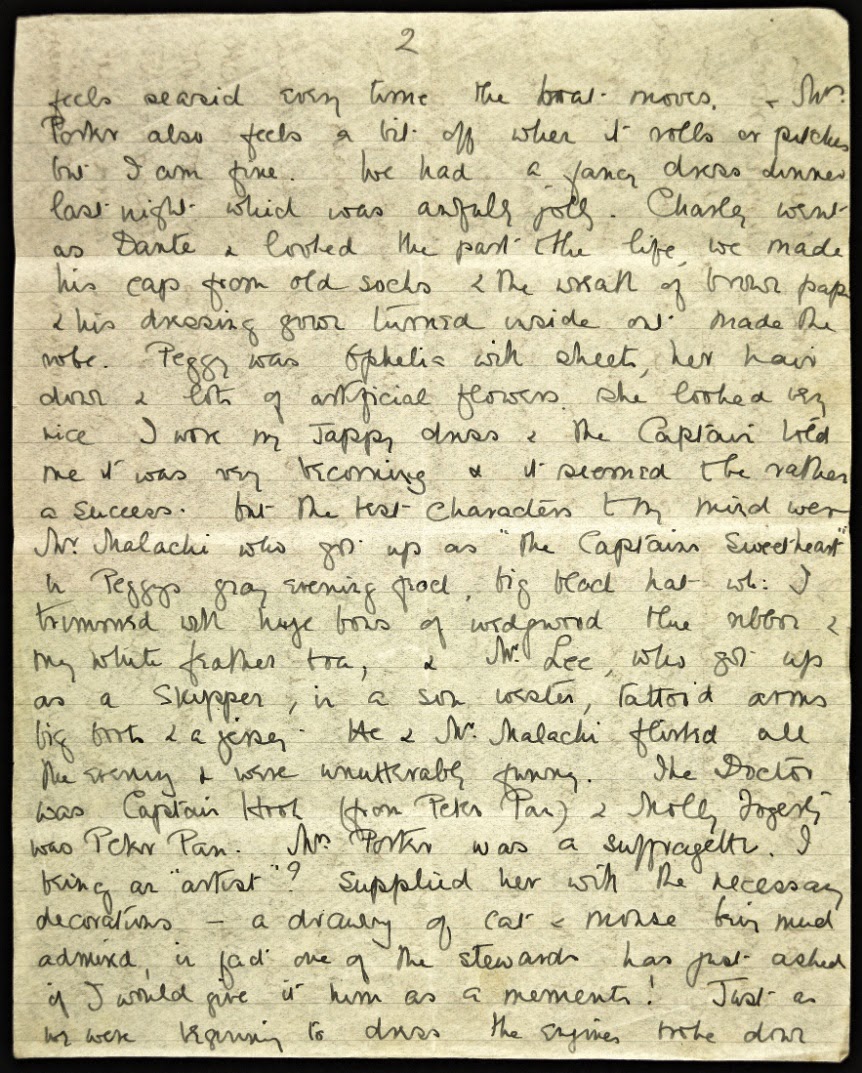 2
feels seasick every time the boat moves. & Mrs.
Porter also feels a bit off when it rolls or pitches
but I am fine. We had a fancy dress dinner
last night which was awfully jolly. Charley went
as Dante & looked the part to the life, we made
his cap from old socks & the wreath of brown pap
& his dressing gown turned inside out made the
robe. Peggy was Ophelia with sheets, her hair
down & lots of artificial flowers she looked very
nice I wore my Jappy dress & the Captain told
me it was very becoming & it seemed to be rather
a success. but the best characters to my mind were
Mr. Malachi who got up as "the Captains Sweetheart"
in Peggys gray evening frock, big black hat wh: I
trimmed with huge bows of wedgwood blue ribbon &
my white feather boa, & Mr. Lee, who got up
as a Skipper, in a sou wester, tattoo'd arms
big boots & a jersey. He & Mr. Malachi flirted all
the evening & were unutterably funny. The Doctor
was Captain Hook (from Peter Pan) & Molly Fogerty
was Peter Pan. Mrs Porter was a suffragette. I
being an "artist"? supplied her with the necessary
decorations – a drawing of cat & mouse being much
admired, in fact one of the stewards has just asked
if I would give it him as a memento! Just as
we were beginning to dress the engines broke down